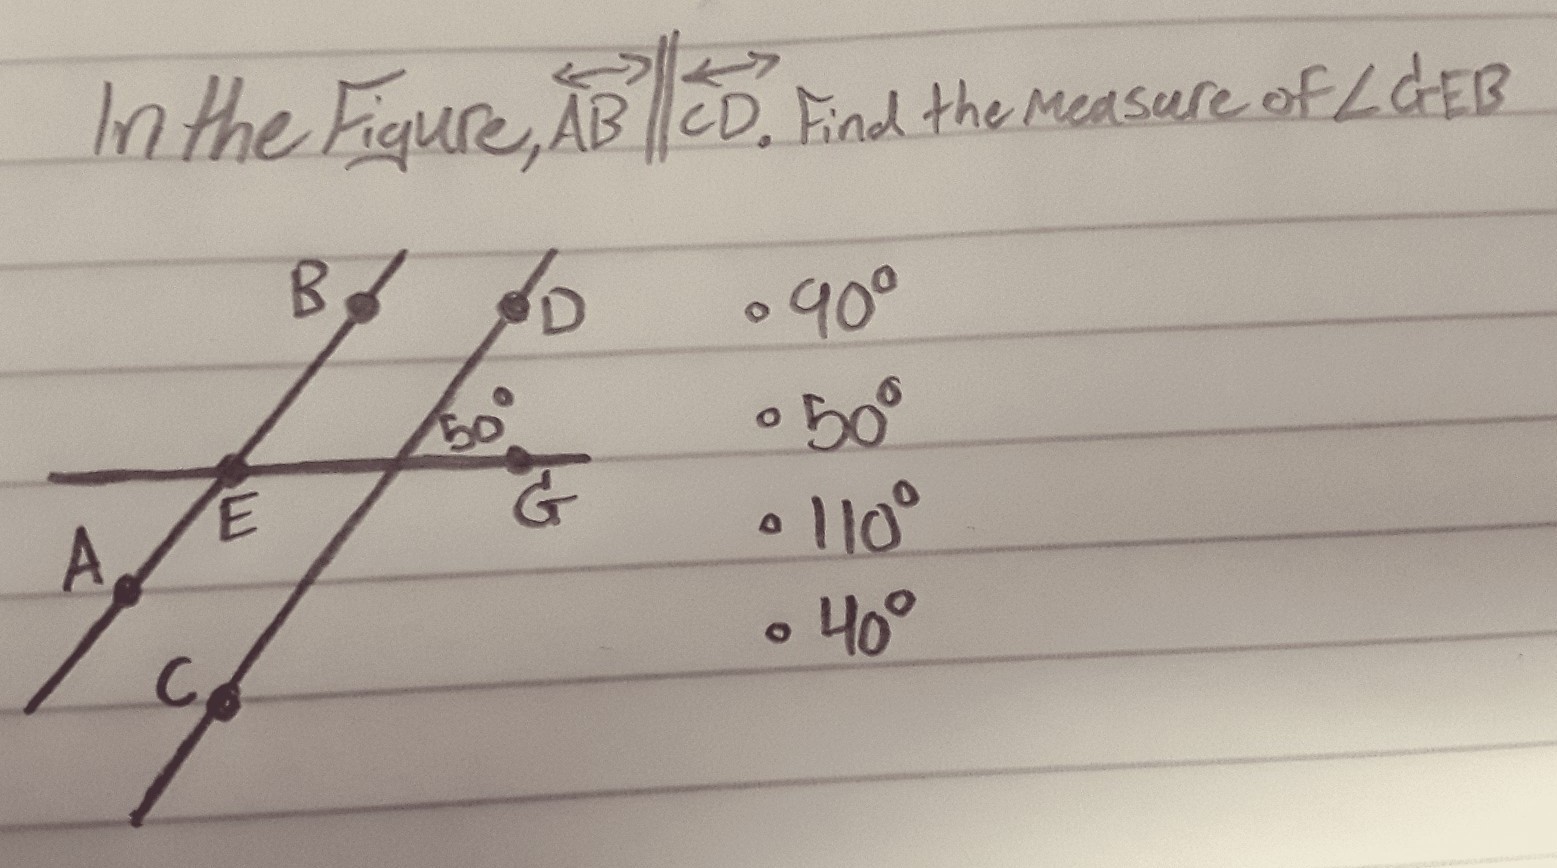 In the Figure, AB || CD. Find the measure of ∠GEB
B
D
90°
50°
50°
E
G
110°
A
40°
C